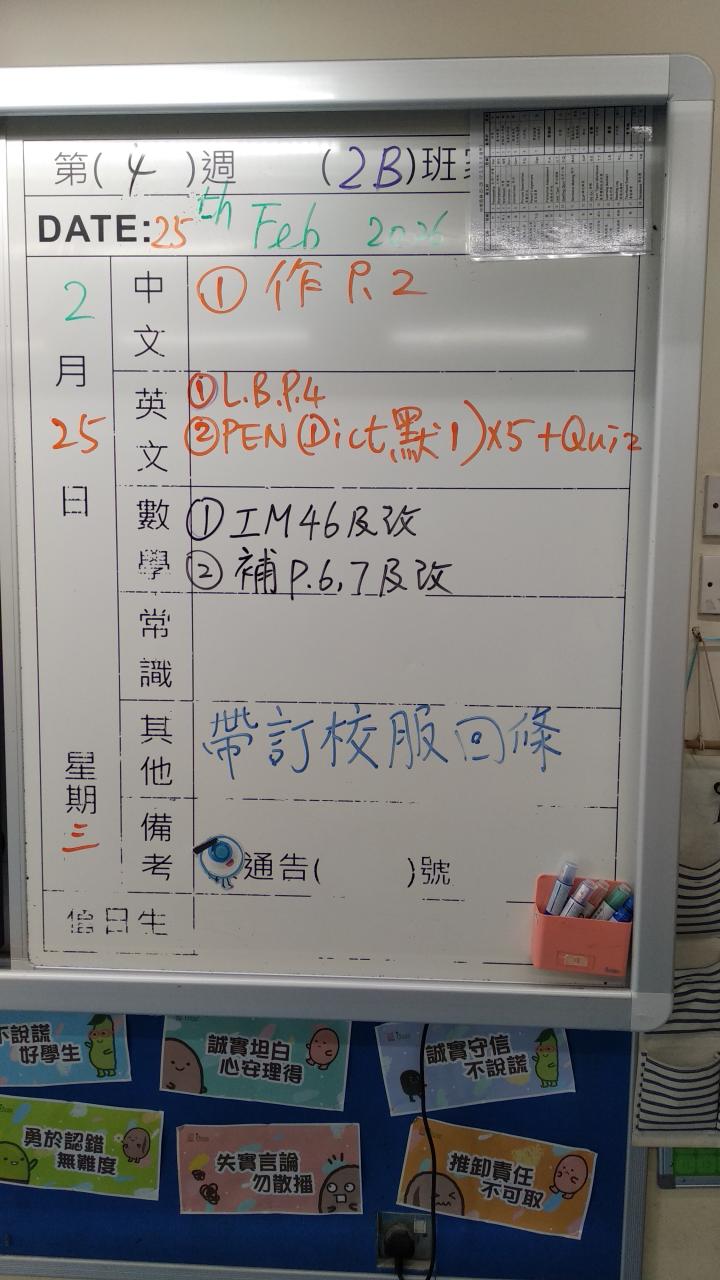 第( 4 )週 (2B)班
DATE:25th Feb 2026
2月25日
星期三
中文
① 作 P.2
英文
① L.B.P.4
② PEN (Dict 默1)X5+Quiz
數學
① IM46及改
② 補 P.6,7及改
常識
其他
帶訂校服回條
備考
通告( )號
值日生
不說謊
好學生
誠實坦白
心安理得
誠實守信
不說謊
勇於認錯
無難度
失實言論
勿散播
推卸責任
不可取